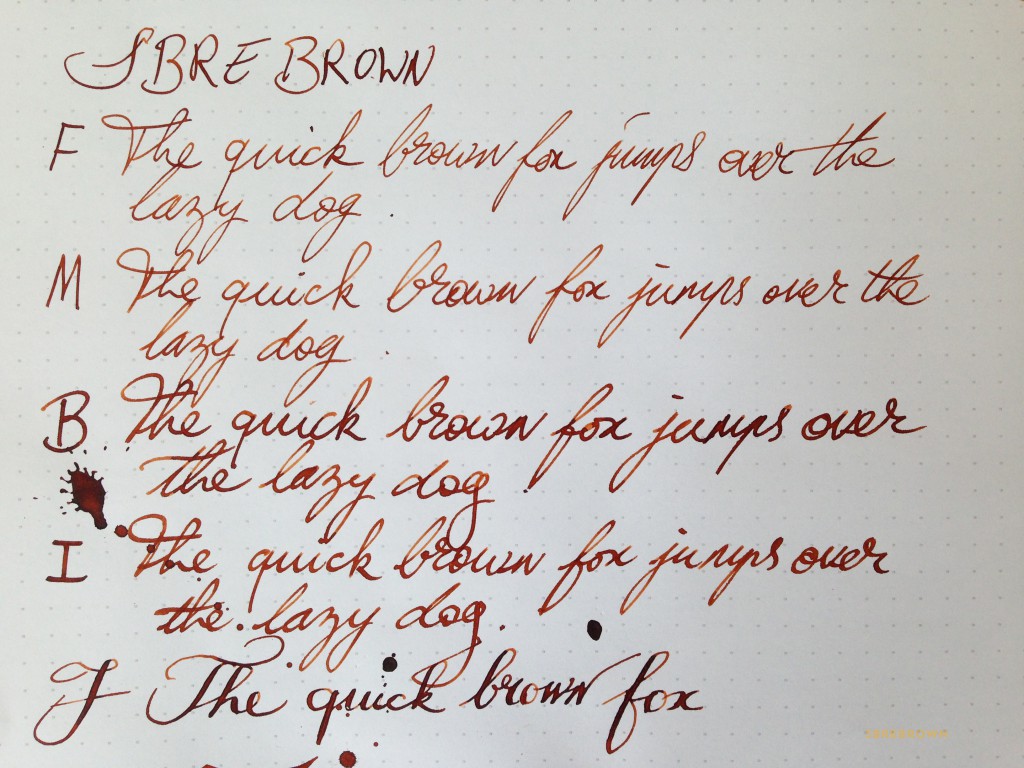 SBRE BROWN
F The quick brown fox jumps over the
lazy dog.
M The quick brown fox jumps over the
lazy dog.
B The quick brown fox jumps over
the lazy dog.
I The quick brown fox jumps over
the lazy dog.
J The quick brown fox